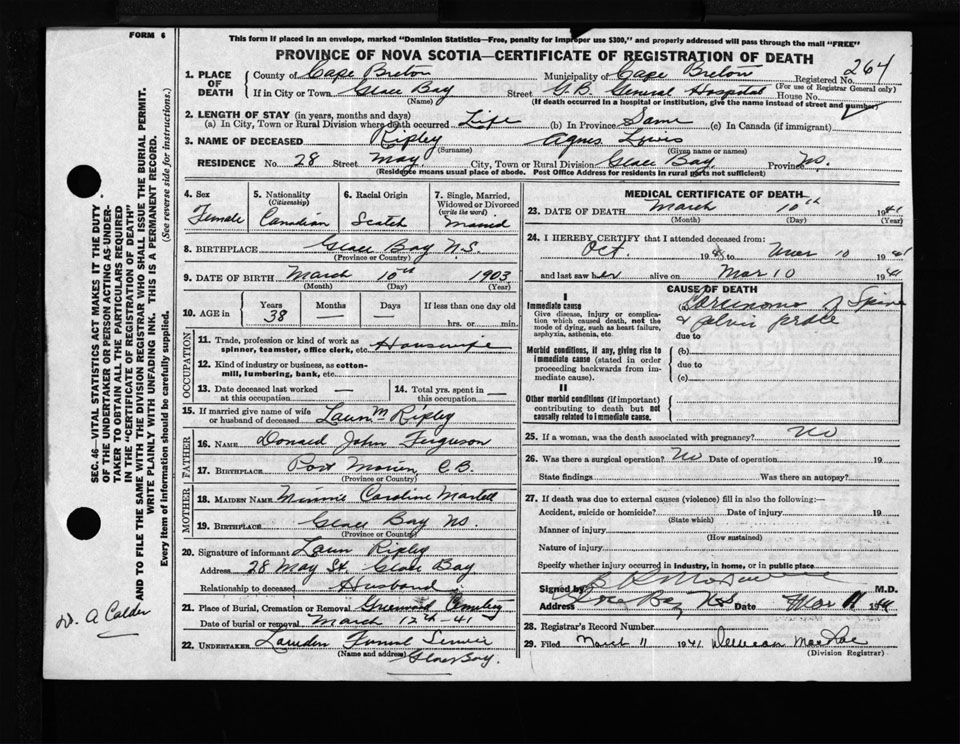 FORM 6
This form if placed in an envelope, marked "Dominion Statistics—Free, penalty for improper use $300," and properly addressed will pass through the mail "FREE"
PROVINCE OF NOVA SCOTIA—CERTIFICATE OF REGISTRATION OF DEATH
1. PLACE OF DEATH County of Cape Breton Municipality of Cape Breton Registered No. 264
(For use of Registrar General only)
If in City or Town Glace Bay Street G.B. General Hospital House No.
(Name) (If death occurred in a hospital or institution, give the name instead of street and number)
2. LENGTH OF STAY (in years, months and days)
(a) In City, Town or Rural Division where death occurred Life (b) In Province Same (c) In Canada (if immigrant)
3. NAME OF DECEASED Ripley Agnes Lewis
(Surname) (Given name or names)
RESIDENCE No. 28 Street May City, Town or Rural Division Glace Bay Province N.S.
(Residence means usual place of abode. Post Office Address for residents in rural parts not sufficient)
4. Sex Female
5. Nationality (Citizenship) Canadian
6. Racial Origin Scotch
7. Single, Married, Widowed or Divorced (write the word) Married
8. BIRTHPLACE Glace Bay N.S.
(Province or Country)
9. DATE OF BIRTH March 10th 1903
(Month) (Day) (Year)
10. AGE in Years 38 Months — Days — If less than one day old hrs. or min.
OCCUPATION
11. Trade, profession or kind of work as spinner, teamster, office clerk, etc. Housewife
12. Kind of industry or business, as cotton-mill, lumbering, bank, etc.
13. Date deceased last worked at this occupation —
14. Total yrs. spent in this occupation —
15. If married give name of wife or husband of deceased Laun M Ripley
FATHER
16. NAME Donald John Ferguson
17. BIRTHPLACE Port Morien, C.B.
(Province or Country)
MOTHER
18. MAIDEN NAME Minnie Caroline Martell
19. BIRTHPLACE Glace Bay N.S.
(Province or Country)
20. Signature of informant Laun Ripley
Address 28 May St. Glace Bay
Relationship to deceased Husband
21. Place of Burial, Cremation or Removal Greenwood Cemetery
Date of burial or removal March 12th - 41
22. UNDERTAKER Funeral Service
(Name and address) Glace Bay.
MEDICAL CERTIFICATE OF DEATH
23. DATE OF DEATH March 10th 1941
(Month) (Day) (Year)
24. I HEREBY CERTIFY that I attended deceased from:
Oct. 194 to Mar 10 1941
and last saw her alive on Mar 10 1941
CAUSE OF DEATH
I
Immediate cause
Give disease, injury or complication which caused death, not the mode of dying, such as heart failure, asphyxia, asthenia, etc.
(a) Carcinoma of Spine & pelvic girdle
due to
Morbid conditions, if any, giving rise to immediate cause (stated in order proceeding backwards from immediate cause).
(b)
due to
(c)
II
Other morbid conditions (if important) contributing to death but not causally related to immediate cause.
25. If a woman, was the death associated with pregnancy? No
26. Was there a surgical operation? No Date of operation 19
State findings Was there an autopsy?
27. If death was due to external causes (violence) fill in also the following:—
Accident, suicide or homicide? Date of injury 19
(State which)
Manner of injury
(How sustained)
Nature of injury
Specify whether injury occurred in industry, in home, or in public place
Signed by M.D.
Address Glace Bay N.S. Date Mar 11 1941
28. Registrar's Record Number
29. Filed March 11 1941
(Division Registrar)
SEC. 46—VITAL STATISTICS ACT MAKES IT THE DUTY OF THE UNDERTAKER OR PERSON ACTING AS UNDERTAKER TO OBTAIN ALL THE PARTICULARS REQUIRED IN THE "CERTIFICATE OF REGISTRATION OF DEATH" AND TO FILE THE SAME WITH THE DIVISION REGISTRAR WHO SHALL ISSUE THE BURIAL PERMIT.
WRITE PLAINLY WITH UNFADING INK. THIS IS A PERMANENT RECORD.
Every item of information should be carefully supplied. (See reverse side for instructions.)
A Calder